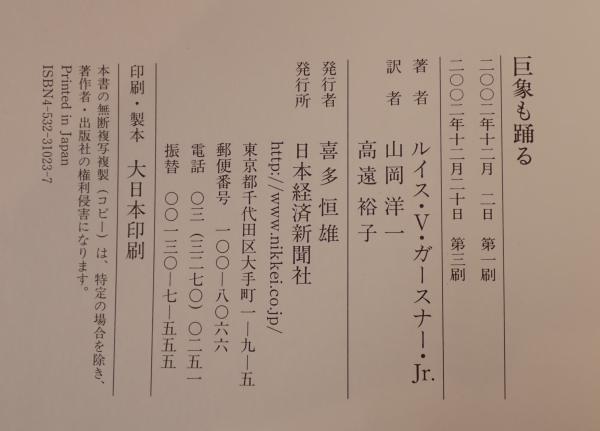 巨象も踊る
二〇〇二年十二月　二日　第一刷
二〇〇二年十二月二十日　第三刷
著者　ルイス・V・ガースナー・Jr.
訳者　山岡洋一
高遠裕子
発行者　喜多恒雄
発行所　日本経済新聞社
http://www.nikkei.co.jp/
東京都千代田区大手町一―九―五
郵便番号　一〇〇―八〇六六
電話　〇三（三二七〇）〇二五一
振替　〇〇一三〇―七―五五五
印刷・製本　大日本印刷
本書の無断複写複製（コピー）は、特定の場合を除き、
著作者・出版社の権利侵害になります。
Printed in Japan
ISBN4-532-31023-7